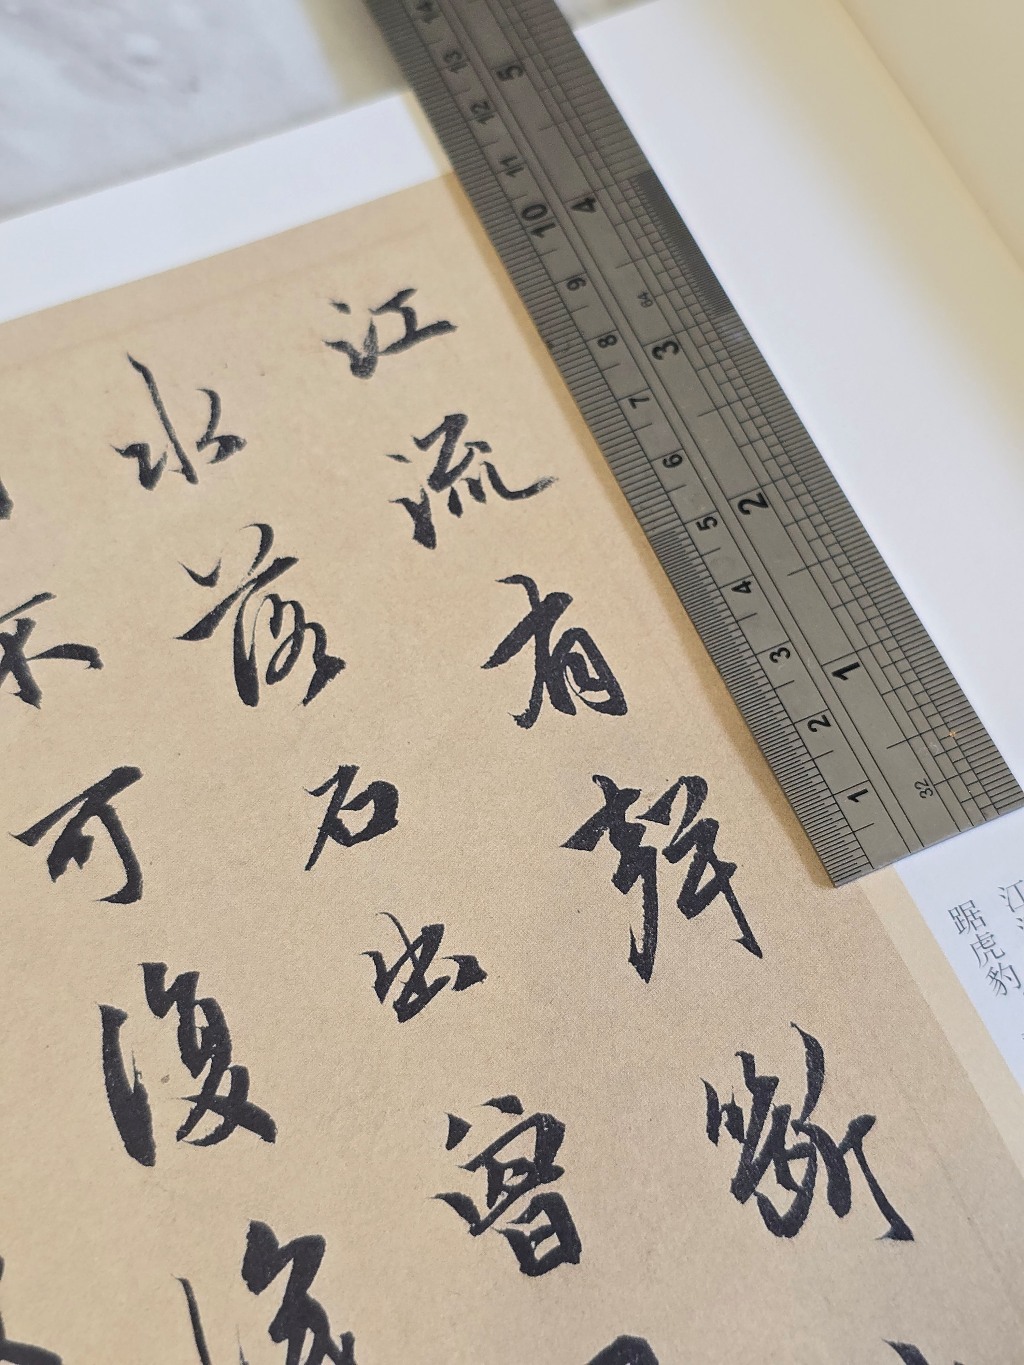 江流有聲斷
水落石出曾
不可復
踞虎豹
14 13 12 11 10 9 8 7 6 5 4 3 2 1
5 4 3 2 1
64
32